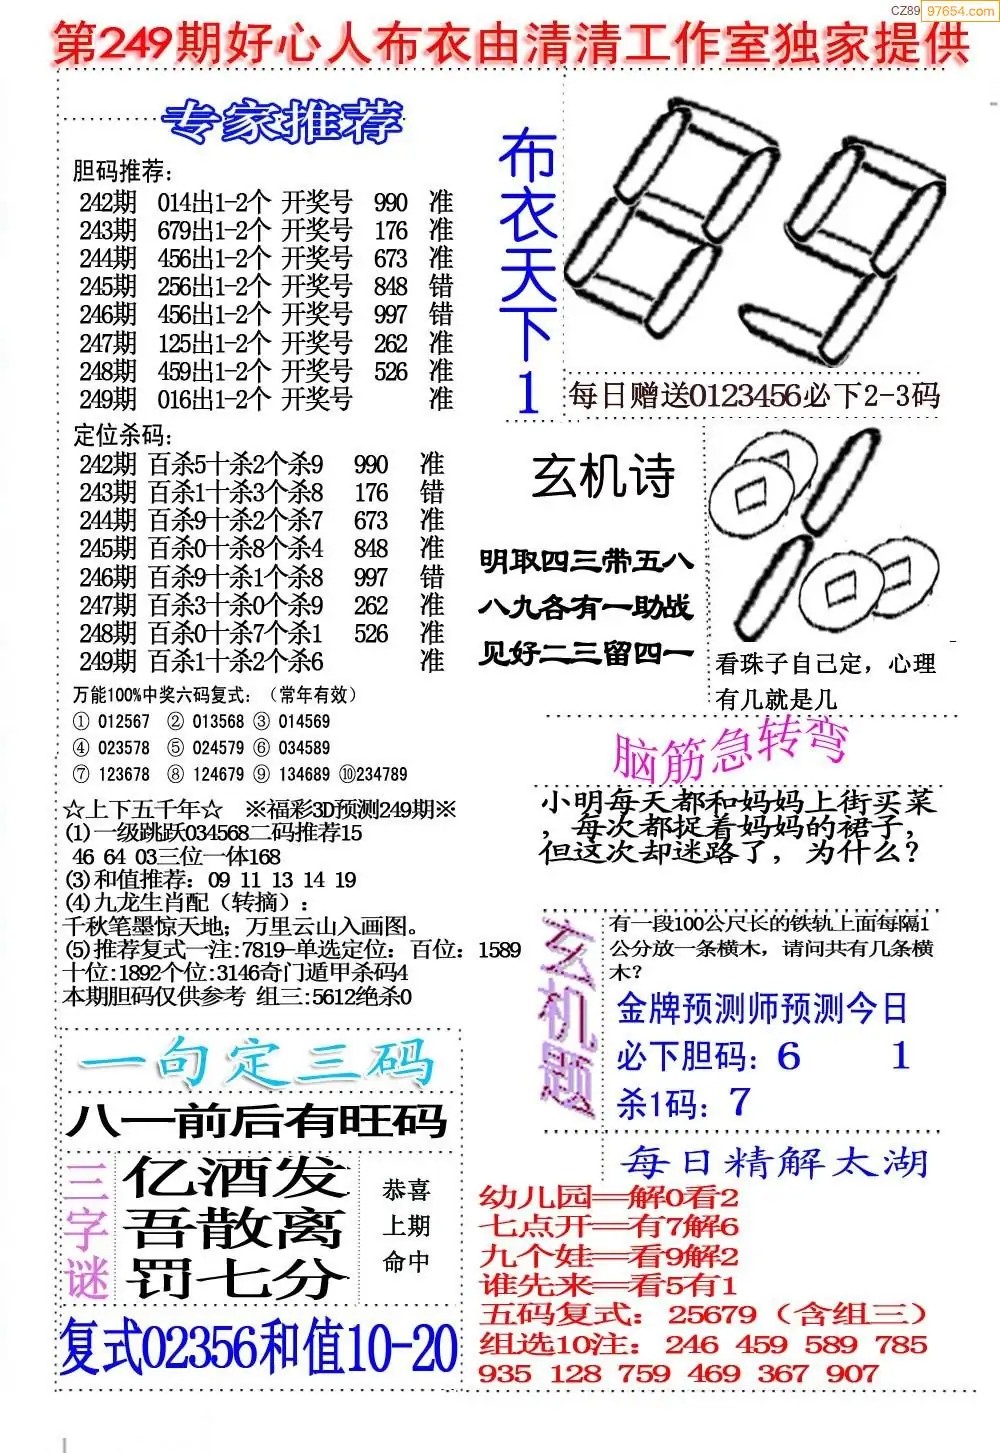 CZ89 97654.com
第249期好心人布衣由清清工作室独家提供
专家推荐
胆码推荐:
242期 014出1-2个 开奖号 990 准
243期 679出1-2个 开奖号 176 准
244期 456出1-2个 开奖号 673 准
245期 256出1-2个 开奖号 848 错
246期 456出1-2个 开奖号 997 错
247期 125出1-2个 开奖号 262 准
248期 459出1-2个 开奖号 526 准
249期 016出1-2个 开奖号 准
定位杀码:
242期 百杀5十杀2个杀9 990 准
243期 百杀1十杀3个杀8 176 错
244期 百杀9十杀2个杀7 673 准
245期 百杀0十杀8个杀4 848 准
246期 百杀9十杀1个杀8 997 错
247期 百杀3十杀0个杀9 262 准
248期 百杀0十杀7个杀1 526 准
249期 百杀1十杀2个杀6 准
万能100%中奖六码复式:（常年有效）
① 012567 ② 013568 ③ 014569
④ 023578 ⑤ 024579 ⑥ 034589
⑦ 123678 ⑧ 124679 ⑨ 134689 ⑩234789
☆上下五千年☆ ※福彩3D预测249期※
(1)一级跳跃034568二码推荐15
46 64 03三位一体168
(3)和值推荐：09 11 13 14 19
(4)九龙生肖配（转摘）:
千秋笔墨惊天地；万里云山入画图。
(5)推荐复式一注:7819-单选定位：百位：1589
十位:1892个位:3146奇门遁甲杀码4
本期胆码仅供参考 组三:5612绝杀0
一句定三码
八一前后有旺码
三字谜
亿酒发
吾散离
罚七分
恭喜
上期
命中
复式02356和值10-20
布衣天下1
每日赠送0123456必下2-3码
玄机诗
明取四三带五八
八九各有一助战
见好二三留四一
看珠子自己定，心理
有几就是几
脑筋急转弯
小明每天都和妈妈上街买菜
，每次都捉着妈妈的裙子，
但这次却迷路了，为什么？
玄机题
有一段100公尺长的铁轨上面每隔1
公分放一条横木，请问共有几条横
木?
金牌预测师预测今日
必下胆码：6 1
杀1码：7
每日精解太湖
幼儿园══解0看2
七点开══有7解6
九个娃══看9解2
谁先来══看5有1
五码复式：25679（含组三）
组选10注： 246 459 589 785
935 128 759 469 367 907